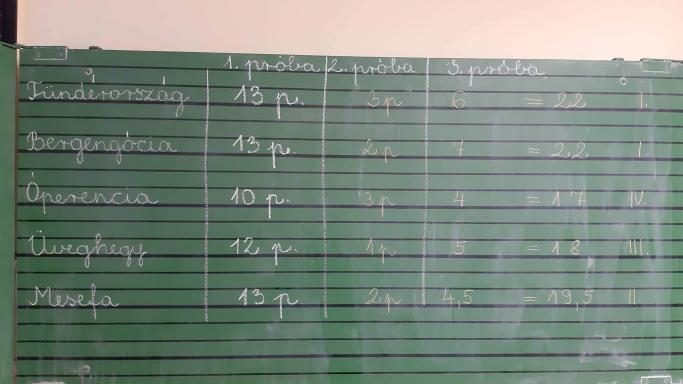 1. próba 2. próba 3. próba
Tündérország 13 p. 3p 6 = 22 I.
Bergengócia 13 p. 2p 7 = 22 I.
Óperencia 10 p. 3p 4 = 17 IV.
Üveghegy 12 p. 1p 5 = 18 III.
Mesefa 13 p 2p 4,5 = 19,5 II.